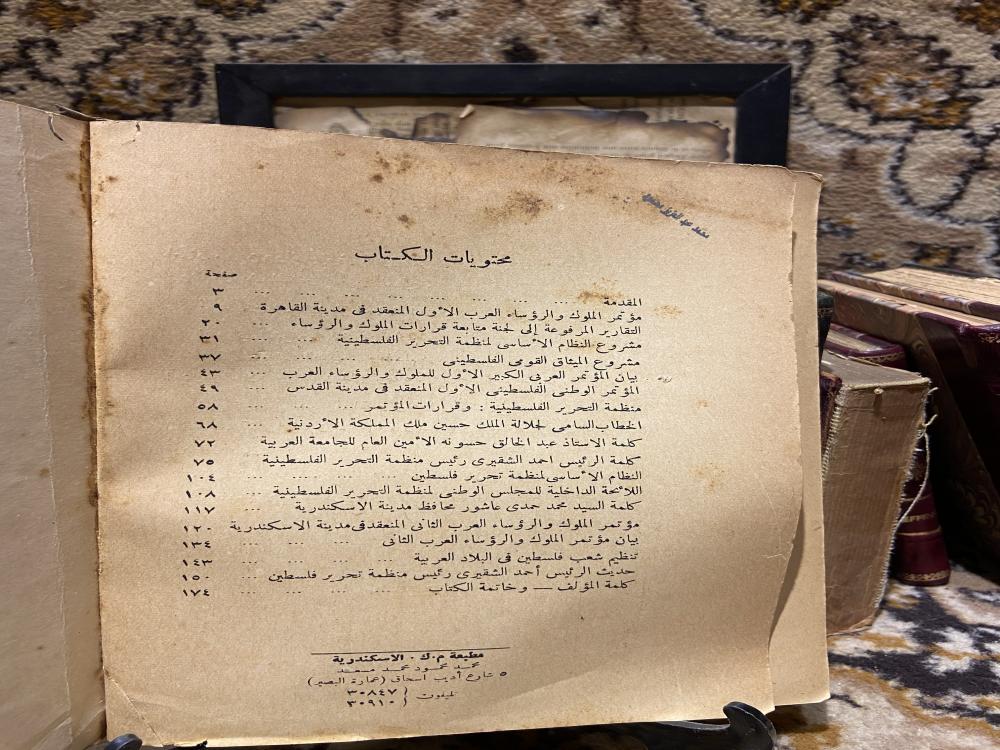 محتويات الكتاب
صفحة
المقدمة ... ... ... ... ... ... ... ٣
مؤتمر الملوك والرؤساء العرب الأول المنعقد فى مدينة القاهرة ٩
التقارير المرفوعة إلى لجنة متابعة قرارات الملوك والرؤساء ... ٢٠
مشروع النظام الأساسى لمنظمة التحرير الفلسطينية ... ... ٣١
مشروع الميثاق القومى الفلسطينى ... ... ... ... ٣٧
بيان المؤتمر العربى الكبير الأول للملوك والرؤساء العرب ... ٤٣
المؤتمر الوطنى الفلسطينى الأول المنعقد فى مدينة القدس ... ٤٩
منظمة التحرير الفلسطينية : وقرارات المؤتمر ... ... ... ٥٨
الخطاب السامى لجلالة الملك حسين ملك المملكة الأردنية ... ٦٨
كلمة الاستاذ عبد الخالق حسونه الأمين العام للجامعة العربية ٧٢
كلمة الرئيس احمد الشقيرى رئيس منظمة التحرير الفلسطينية ٧٥
النظام الأساسى لمنظمة تحرير فلسطين ... ... ... ... ١٠٤
اللائحة الداخلية للمجلس الوطنى لمنظمة التحرير الفلسطينية ... ١٠٨
كلمة السيد محمد حمدى عاشور محافظ مدينة الاسكندرية ... ١١٧
مؤتمر الملوك والرؤساء العرب الثانى المنعقد فى مدينة الاسكندرية ١٢٠
بيان مؤتمر الملوك والرؤساء العرب الثانى ... ... ... ١٣٤
تنظيم شعب فلسطين فى البلاد العربية ... ... ... ... ١٤٣
حديث الرئيس أحمد الشقيرى رئيس منظمة تحرير فلسطين ... ١٥٠
كلمة المؤلف — وخاتمة الكتاب ... ... ... ... ١٧٤
مطبعة م.ك. الاسكندرية
محمد محمود محمد مسعد
٥ شارع أديب اسحاق (عمارة البصير)
تليفون ٣٠٨٤٧
٣٠٩١٠